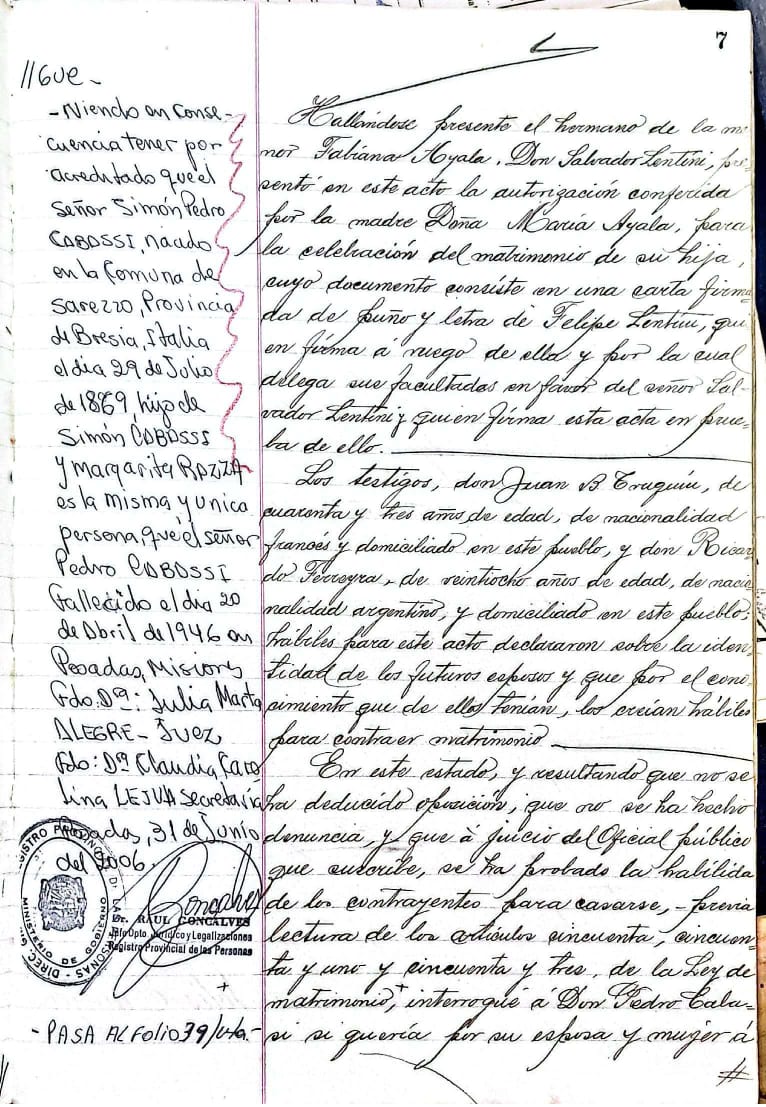 7
//GUE-
-Niendo en Conse-
cuencia tener por
acreditado que el
señor Simón Pedro
CABASSI, nacido
en la Comuna de
Sarezzo, Provincia
de Bresia, Italia
el dia 29 de Julio
de 1869, hijo de
Simón CABASSI
y margarita RAZZA
es la misma y unica
persona, que el señor
Pedro CABASSI
Fallecido el dia 20
de Abril de 1946 en
Posadas, Misiones
Fdo: Dª: Julia Marta
ALEGRE - Juez
Fdo: Dª Claudia Caro
lina LEIVA Secretaría
Posadas, 31 de Junio
del 2006.
MINISTERIO DE GOBIERNO
Dr. RAUL GONCALVES
Jefe Dpto. Jurídico y Legalizaciones
Registro Provincial de las Personas
-PASA AL Folio 39/vta.-
Hallándose presente el hermano de la me
nor Fabiana Ayala, Don Salvador Lentini, pre-
sentó en este acto la autorización conferida
por la madre Doña María Ayala, para
la celebración del matrimonio de su hija,
cuyo documento consiste en una carta firma
da de puño y letra de Felipe Lentini, qui
en firma á ruego de ella y por la cual
delega sus facultades en favor del señor Sal-
vador Lentini y quien firma esta acta en prue-
ba de ello.
Los testigos, don Juan B Truquin, de
cuarenta y tres años de edad, de nacionalidad
francés y domiciliado en este pueblo, y don Ricar
do Ferreyra, de veintiocho años de edad, de nacio
nalidad argentino, y domiciliado en este pueblo;
hábiles para este acto declararon sobre la iden-
tidad de los futuros esposos y que por el cono-
cimiento que de ellos tenían, los creían hábiles
para contraer matrimonio
En este estado, y resultando que no se
ha deducido oposición, que no se ha hecho
denuncia, y que á juicio del Oficial público
que suscribe, se ha probado la habilida
de los contrayentes para casarse, - previa
lectura de los artículos cincuenta, cincuen-
ta y uno y cincuenta y tres, de la Ley de
matrimonio, interrogué á Don Pedro Cala-
si si quería por su esposa y mujer á
#